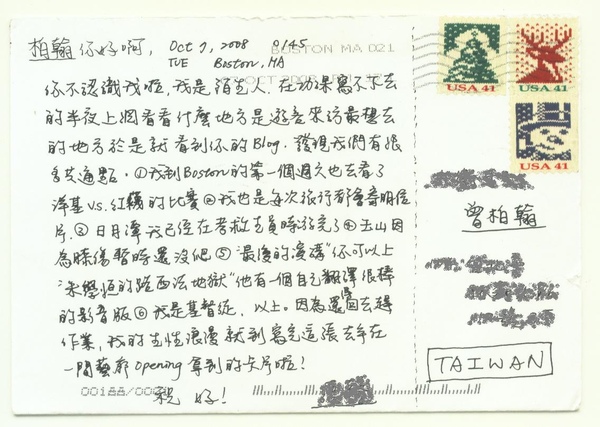 柏翰你好啊, Oct 7, 2008 0145
TUE Boston, MA
BOSTON MA 021
你不認識我啦, 我是陌生人, 在功課寫不下去
的半夜上網看看什麼地方是遊客來訪最想去
的地方於是就看到你的Blog. 發現我們有很
多共通點. ①我到Boston的第一個週六也去看了
洋基V.S.紅襪的比賽②我也是每次旅行都會寄明信
片. ③日月潭我已經在考救生員時游完了④玉山因
為膝傷暫時還沒爬⑤"最後的演講"你可以上
"朱學恒的路西法地獄"他有一個自己翻譯很棒
的影音版⑥我是基督徒. 以上。因為還要回去趕
作業, 我的生性浪漫就到寫完這張去年在
一間藝廊opening拿到的卡片啦!
祝 好!
USA 41
USA 41
USA 41
曾柏翰
TAIWAN